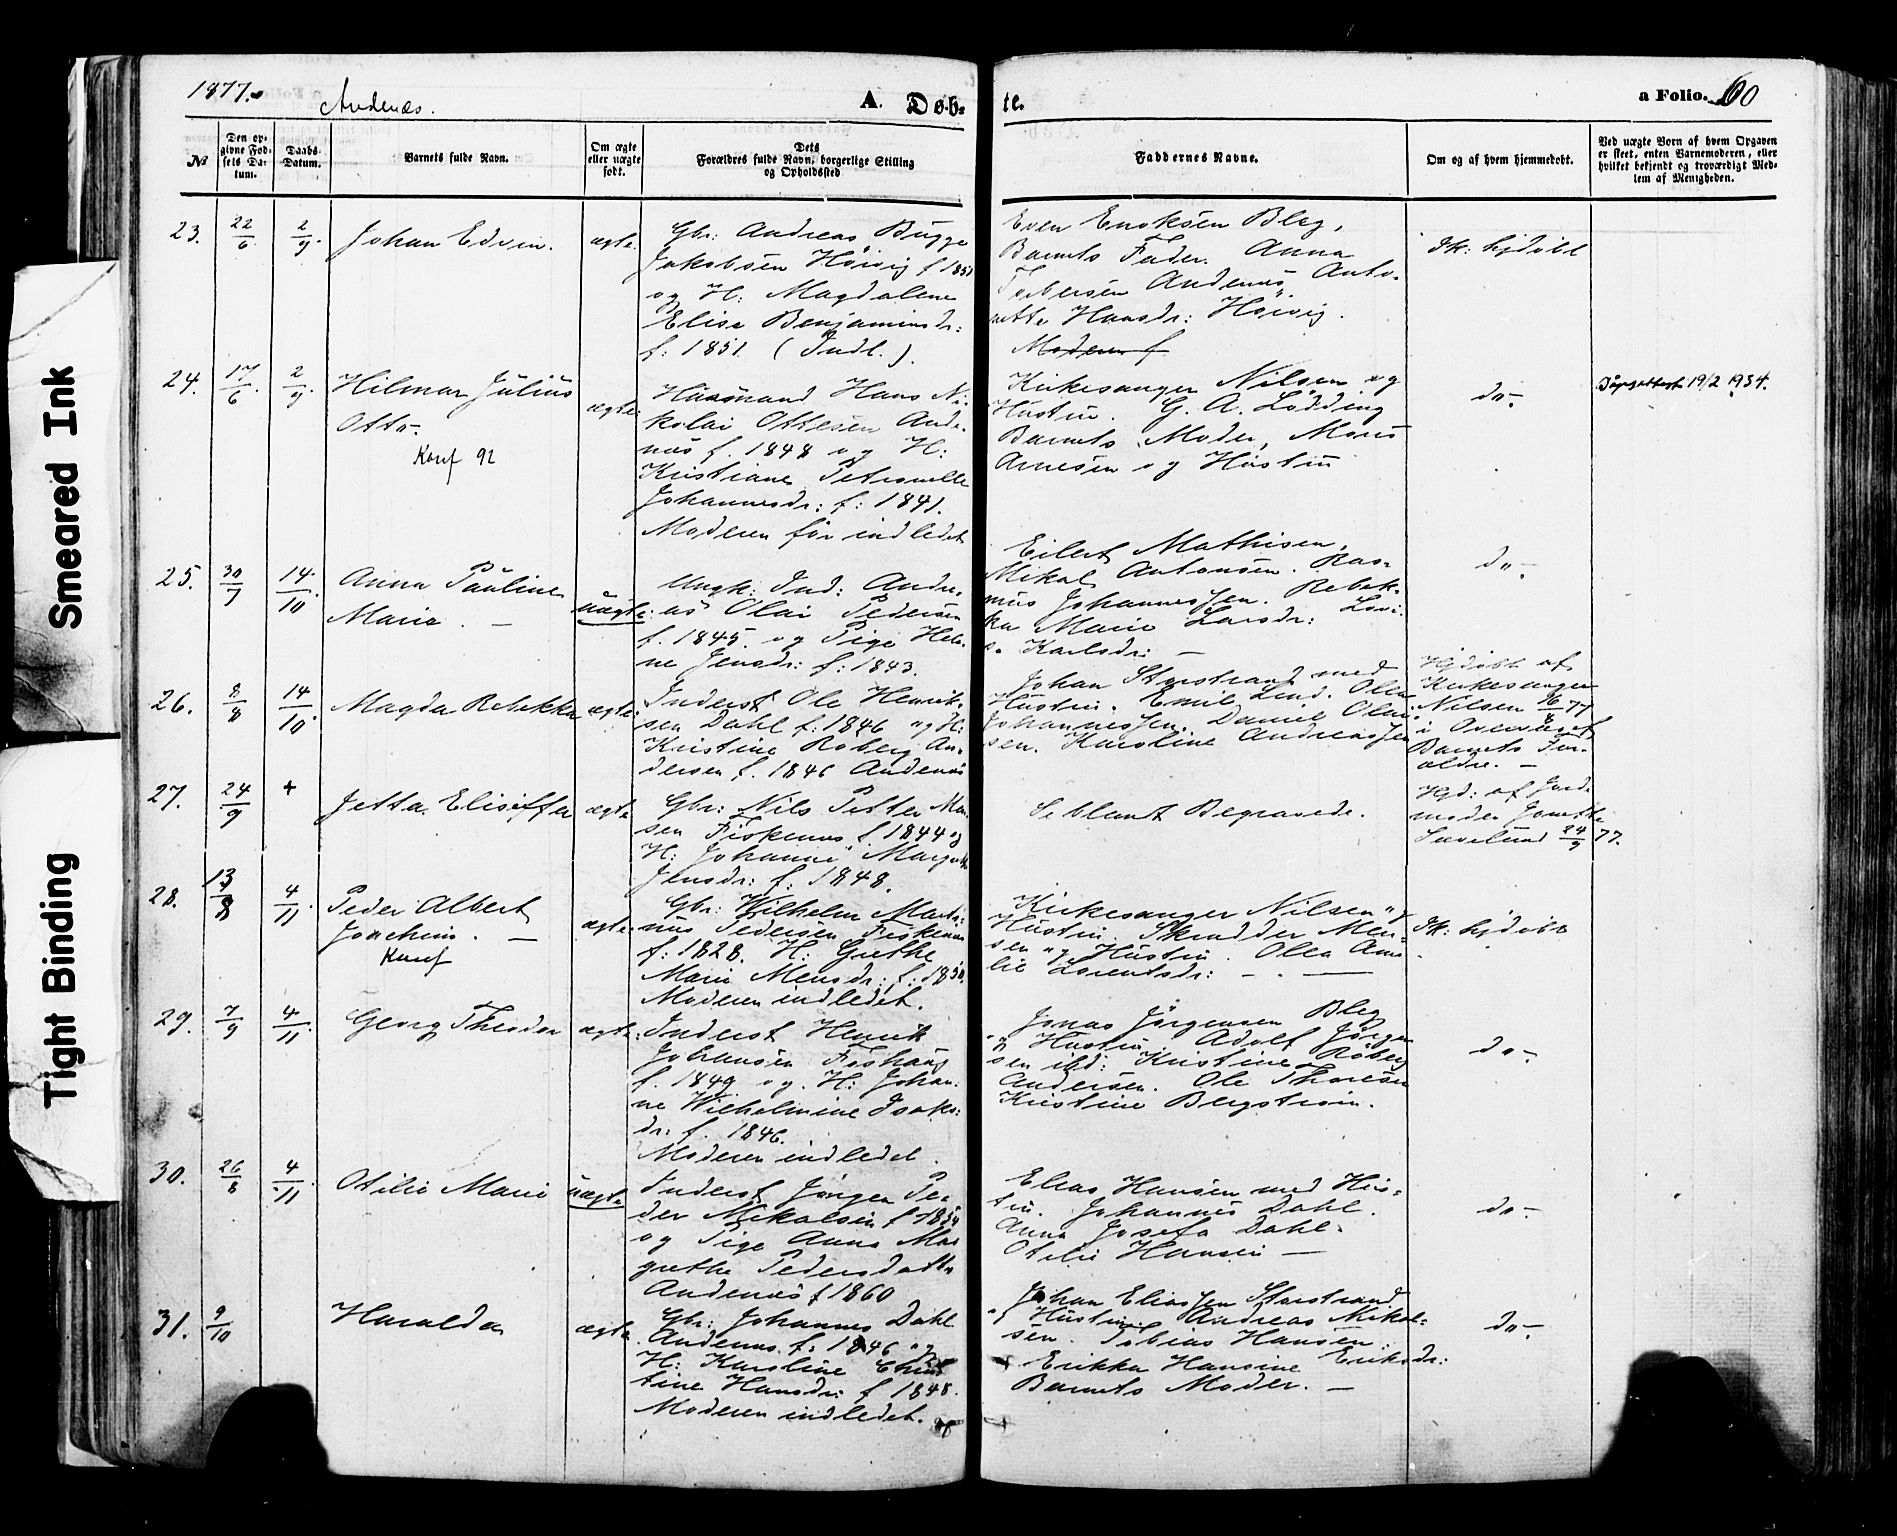 1877.
Andenæs.
A. Døb-
te.
a Folio. 60
No
Den op-
givne Fød-
sels Da-
tum.
Daabs-
Datum.
Barnets fulde Navn.
Om ægte
eller uægte
født.
Dets
Forældres fulde Navn, borgerlige Stilling
og Opholdssted
Faddernes Navne.
Om og af hvem hjemmedøbt.
Ved uægte Børn af hvem Opgaven
er skeet, enten Barnemoderen, eller
hvilket bekjendt og troværdigt Med-
lem af Menigheden.
23.
22/6
2/9.
Johan Edvin.
ægte.
Gbr: Andreas Bugge
Jakobsen Høivig f 1851
og H: Magdalene
Elise Benjaminsdr:
f: 1851. (Indl.).
Even Enoksen Bleg,
Barnets Fader. Anna
Torbersen Andenæs. Anto-
nette Hansdr: Høivig.
Moderen f
Ik: hjdøbt
24.
17/6.
2/9.
Hilmar Julius
Otto.
Konf 92
ægte.
Huusmand Hans Ni-
kolai Ottesen Ande-
næs f. 1848 og H:
Kristiane Petronelle
Johannesdr: f: 1841.
Moderen før indledet
Kirkesanger Nilsen og
Hustru. G. A. Lødding
Barnets Moder, Mons
Arnesen og Hustru
do-.
Døpeattest 19/2 1934.
25.
30/7
14/10.
Anna Pauline
Marie. —
uægte:
Ungk: Ind: Andre-
as Olai Pedersen
f. 1845. og Pige Hele-
ne Jensdr: f: 1843.
Eilert Mathisen,
Mikal Antonsen. Ras-
mus Johannessen. Rebek-
ka Marie Larsdr: Lovi-
se Karlsdr: —
do-.
26.
8/8
14/10.
Magda Rebekka
ægte:
Inderst Ole Henrik-
sen Dahl f: 1846 og H:
Kristine Roberg An-
dersen f. 1846 Andenæs
Johan Storstrand med
Hustru. Emil Lind. Olea
Johannessen. Daniel Olai-
sen. Karoline Andreassen
Hjdøbt af
Kirkesanger
Nilsen 16/8 77
i Overværelse
Barnets For-
ældre. —
27.
24/9
+
Jetta Elisiffa
ægte
Gbr: Nils Petter Mon-
sen Fiskenæs f. 1844 og
H: Johanne Margrethe
Jensdr: f: 1848.
Se blandt Begravede.
Hjd: af Jord-
moder Jonette
24/9 77.
28.
13/8
4/11.
Peder Albert
Joachim. —
Konf
ægte.
Gbr: Wilhelm Marti-
nus Pedersen Fiskenæs
f: 1828. H: Grethe
Marie Monsdr: f: 1830.
Moderen indledet.
Kirkesanger Nilsen og
Hustru. Skrædder Mon-
sen og Hustru. Olea Ama-
lie Lorentsdr: —
Ik: hjdøbt
29.
7/9
4/11.
Georg Theodor
ægte:
Inderst Henrik
Johansen Fishaug
f. 1849 og H: Johan-
ne Wilhelmine Isaks-
dr: f. 1846.
Moderen indledet.
Jonas Jørgensen Bleg
og Hustru. Adolf Jørgen-
sen ibd: Kristine Roberg
Andersen. Ole Thoresen
Kristine Bergstrøm.
do-.
30.
26/8
4/11
Otilie Marie
uægte
Inderst Jørgen Pe-
der Mikalsen f 1854
og Pige Anna Mar-
grethe Pedersdatter
Andenæs f 1860
Elias Hansen med Hus-
tru. Johannes Dahl.
Anna Josefa Dahl.
Otilie Hansen —
do-.
31.
9/10
Haralda
ægte
Gbr: Johannes Dahl
Andenæs. f: 1846 og
H: Karoline Chris-
tine Hansdr: f 1848.
Moderen indledet.
Johan Eliassen Storstrand
og Hustru. Andreas Mikal-
sen. Tobias Hansen.
Erikka Hansine Eriksdr:
Barnets Moder. —
do-.
Smeared Ink
Tight Binding